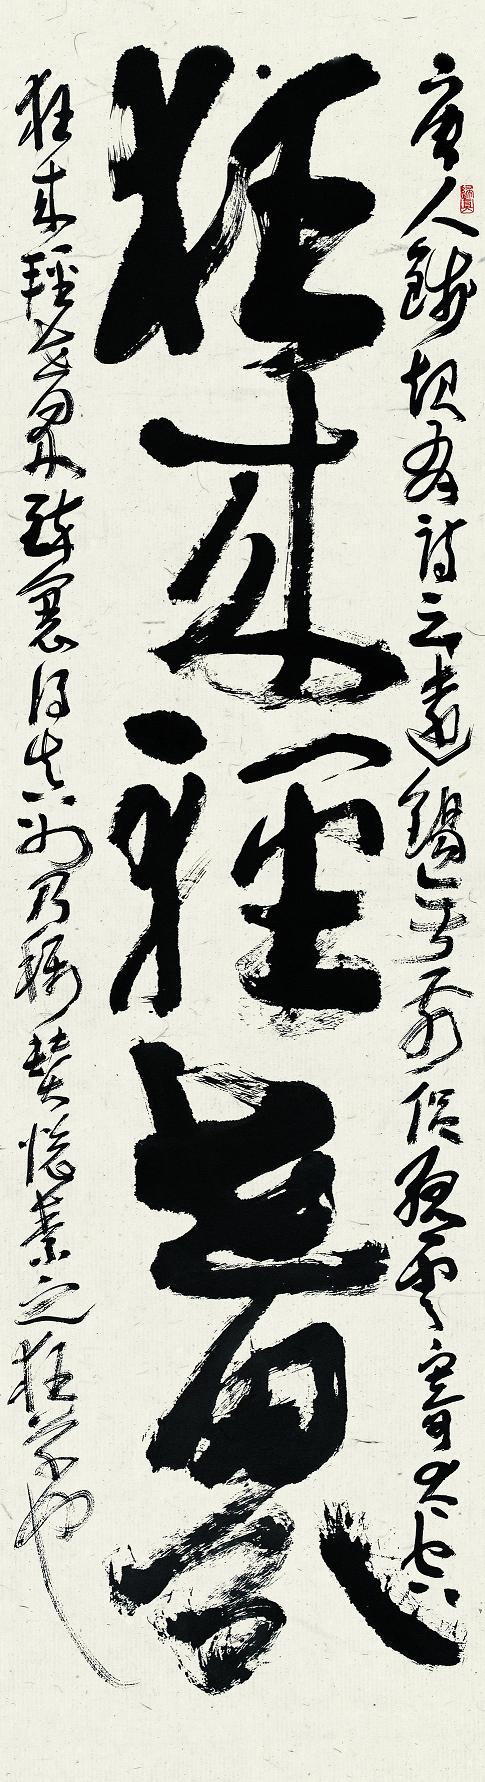 唐人錢起有詩云遠錫無前侶孤雲寄太虛
狂來輕世界
狂來輕世界醉裏得真如乃稱贊懷素之狂草也